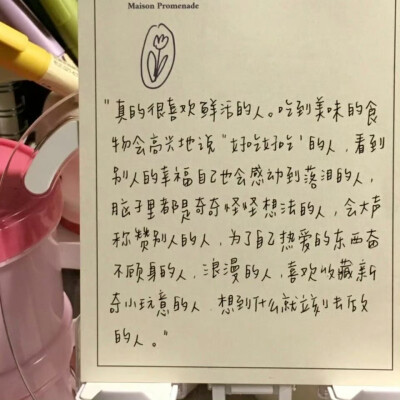 Maison Promenade
"真的很喜欢鲜活的人。吃到美味的食
物会高兴地说"好吃好吃"的人,看到
别人的幸福自己也会感动到落泪的人,
脑子里都是奇奇怪怪想法的人,会大声
称赞别人的人,为了自己热爱的东西奋
不顾身的人,浪漫的人,喜欢收藏新
奇小玩意的人,想到什么就立刻去做
的人。"